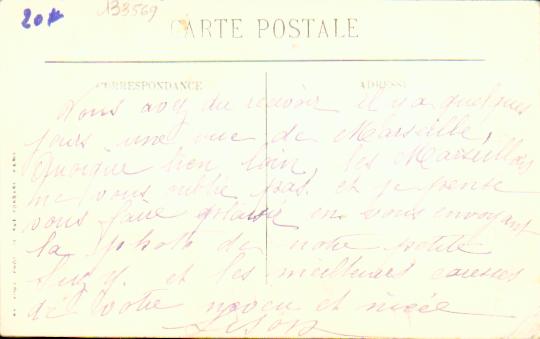 20
133569
CARTE POSTALE
CORRESPONDANCE
ADRESSE
Vous avez du recevoir il y a quelques
jours une vue de Marseille,
Quoique bien loin, les Marseillais
ne vous oublie pas et je pense
vous faire plaisir en vous envoyant
la photo de notre petite
Suzy. et les meilleures caresses
de votre neveu et nièce